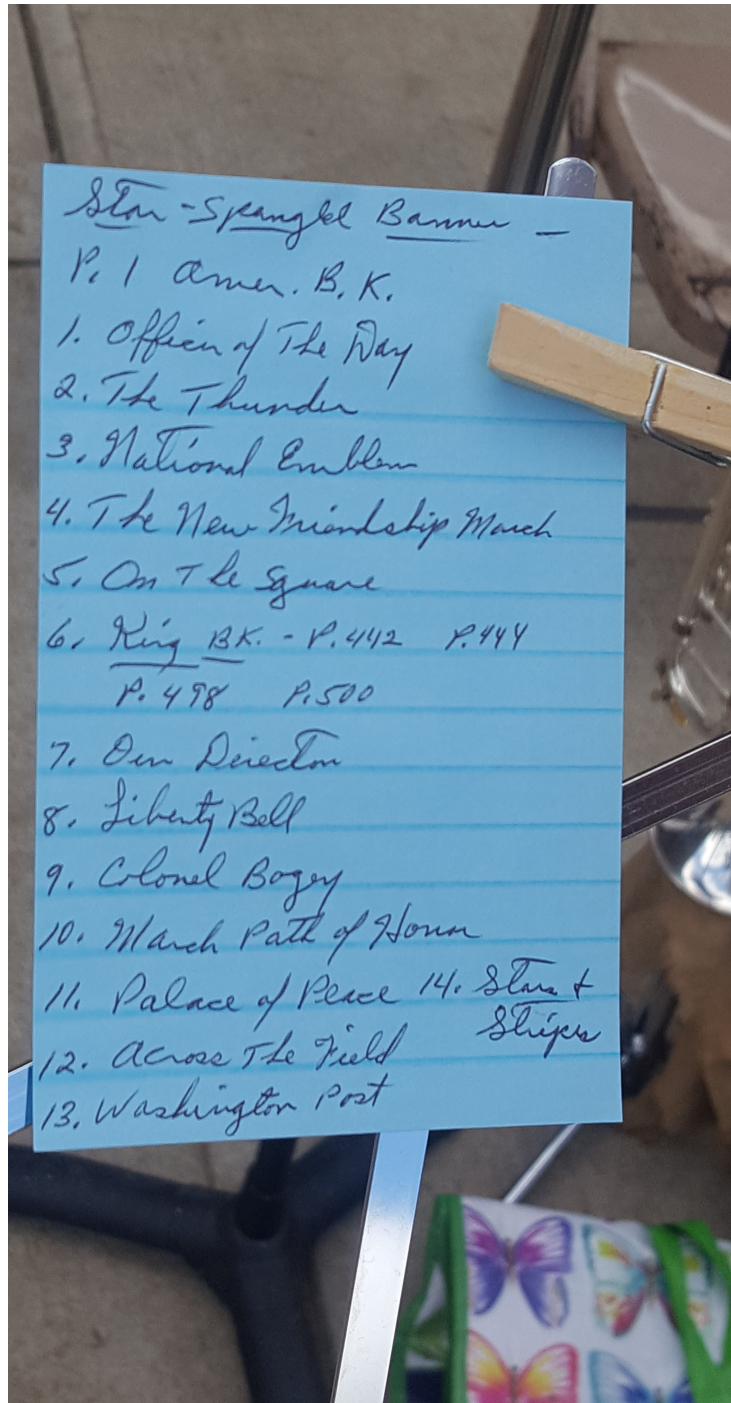 Star-Spangled Banner -
P. 1 Amer. B.K.
1. Officer of The Day
2. The Thunder
3. National Emblem
4. The New Friendship March
5. On The Square
6. King BK. - P. 442 P. 444
P. 498 P. 500
7. Our Director
8. Liberty Bell
9. Colonel Bogey
10. March Path of Honor
11. Palace of Peace 14. Stars &
Stripes
12. Across The Field
13. Washington Post